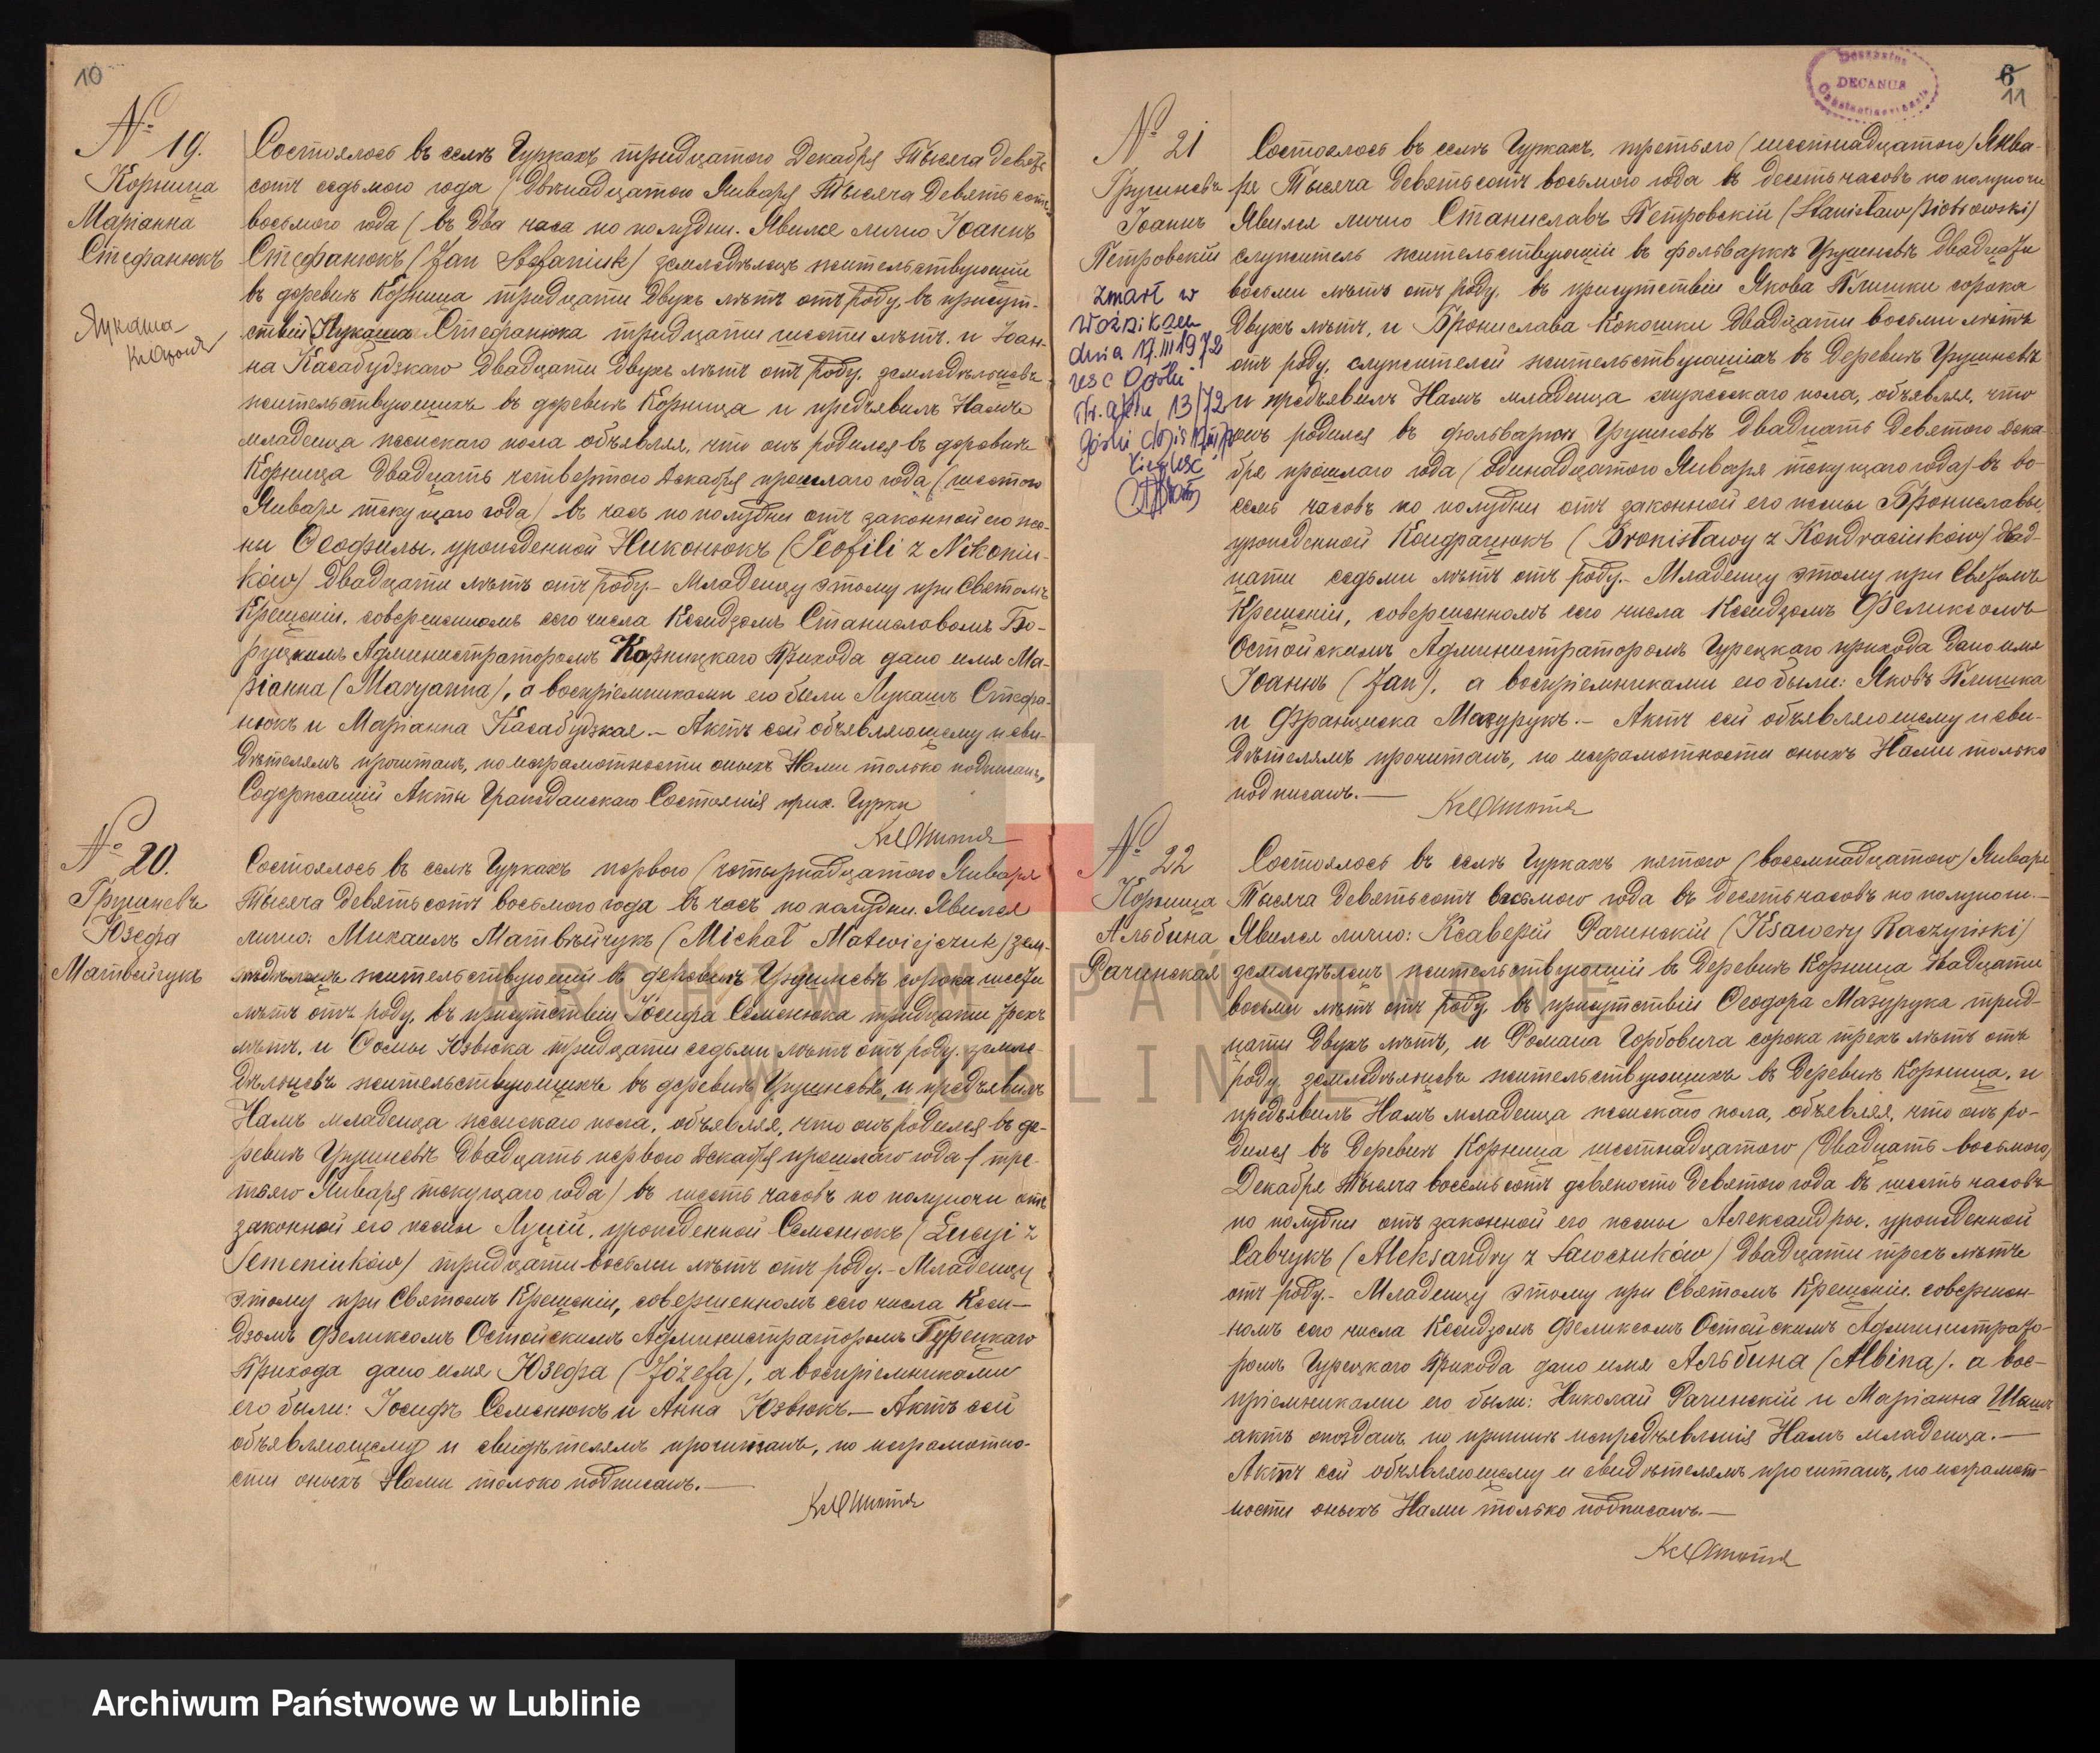 10
№ 19.
Корница
Маріанна
Стефанюкъ
Лукаша
Состоялось въ селѣ Гуркахъ тридцатого Декабря Тысяча девять
сотъ седьмого года (двѣнадцатого Января Тысяча девять сотъ
восьмого года ( въ два часа по полудни. Явился лично Іоаннъ
Стефанюкъ (Jan Stefaniuk) земледѣлецъ жительствующій
въ деревнѣ Корница тридцати двухъ лѣтъ отъ роду, въ присут-
ствіи Лукаша Стефанюка тридцати шести лѣтъ. и Іоан-
на Касабудзкаго двадцати двухъ лѣтъ отъ роду, земледѣльцевъ
жительствующихъ въ деревнѣ Корница и предъявилъ Намъ
младенца женскаго пола объявляя, что онъ родился въ деревнѣ
Корница двадцать четвертого Декабря прошлаго года (шестого
Января текущаго года) въ часъ по полудни отъ законной его же-
ны Ѳеофилы, урожденной Никонюкъ (Teofili z Nikoniu-
ków) двадцати лѣтъ отъ роду.- Младенцу этому при Святомъ
Крещеніи, совершенномъ сего числа Ксендзомъ Станиславомъ Бо-
руцкимъ Администраторомъ Корницкаго Прихода дано имя Ма-
ріанна (Maryanna), а воспріемниками его были Лукашъ Стефа-
нюкъ и Маріанна Касабудзкая.- Актъ сей объявляющему и сви-
дѣтелямъ прочитанъ, по неграмотности оныхъ Нами только подписанъ,
Содержащій Акты Гражданскаго Состоянія прих. Гурки
№ 20.
Грушневъ
Юзефа
Матвейчукъ
Состоялось въ селѣ Гуркахъ первого (четырнадцатого Января
Тысяча девять сотъ восьмого года въ часъ по полудни. Явился
лично: Михаилъ Матвѣйчукъ (Michał Matwiejczuk) зем-
ледѣлецъ жительствующій въ деревнѣ Грушневъ сорока шести
лѣтъ отъ роду, въ присутствіи Іосифа Семенюка тридцати трехъ
лѣтъ, и Ѳомы Юзвюка тридцати седьми лѣтъ отъ роду. земле-
дѣльцевъ жительствующихъ въ деревнѣ Грушневъ, и предъявилъ
Намъ младенца женскаго пола, объявляя, что онъ родился въ де-
ревнѣ Грушневъ двадцать первого Декабря прошлаго года ( тре-
тьяго Января текущаго года) въ шесть часовъ по полуночи отъ
законной его жены Луціи, урожденной Семенюкъ (Łucyi z
Semeniuków) тридцати восьми лѣтъ отъ роду.- Младенцу
этому при Святомъ Крещеніи, совершенномъ сего числа Ксен-
дзомъ Феликсомъ Остойскимъ Администраторомъ Гурецкаго
Прихода дано имя Юзефа (Józefa), а воспріемниками
его были: Іосифъ Семенюкъ и Анна Юзвюкъ.- Актъ сей
объявляющему и свидѣтелямъ прочитанъ, по неграмотно-
сти оныхъ Нами только подписанъ.-
DECANUS
6
11
№ 21
Грушневъ
Іоаннъ
Петровскій
zmarł w
Woźnikach
dnia 17.III 1972
USC Górki
Nr. aktu 13/72
Состоялось въ селѣ Гуркахъ, третьяго (шестнадцатого) Янва-
ря Тысяча девять сотъ восьмого года въ десять часовъ по полуночи
Явился лично Станиславъ Петровскій (Stanisław Piotrowski)
служитель жительствующій въ фольваркѣ Грушневъ двадцати
восьми лѣтъ отъ роду, въ присутствіи Якова Плишки сорока
двухъ лѣтъ, и Бронислава Кокошки двадцати восьми лѣтъ
отъ роду, служителей жительствующихъ въ деревнѣ Грушневъ
и предъявилъ Намъ младенца мужескаго пола, объявляя, что
онъ родился въ фольваркѣ Грушневъ двадцать девятого дека-
бря прошлаго года (одинадцатого Января текущаго года) въ во-
семь часовъ по полудни отъ законной его жены Брониславы,
урожденной Кондрацюкъ (Bronisławy z Kondraciuków) двад-
цати седьми лѣтъ отъ роду.- Младенцу этому при Святомъ
Крещеніи, совершенномъ сего числа Ксендзомъ Феликсомъ
Остойскимъ Администраторомъ Гурецкаго прихода дано имя
Іоаннъ (Jan), а воспріемниками его были: Яковъ Плишка
и Францишка Мазурукъ.- Актъ сей объявляющему и сви-
дѣтелямъ прочитанъ, по неграмотности оныхъ Нами только
подписанъ.-
№ 22
Корница
Альбина
Рачинская
Состоялось въ селѣ Гуркахъ пятого (восемнадцатого) Января
Тысяча девять сотъ восьмого года въ десять часовъ по полуночи.-
Явился лично: Ксаверій Рачинскій (Ksawery Raczyński)
земледѣлецъ жительствующій въ деревнѣ Корница двадцати
восьми лѣтъ отъ роду, въ присутствіи Ѳеодора Мазурука трид-
цати двухъ лѣтъ, и Романа Горбовича сорока трехъ лѣтъ отъ
роду, земледѣльцевъ жительствующихъ въ деревнѣ Корница, и
предъявилъ Намъ младенца женскаго пола, объявляя, что онъ ро-
дился въ деревнѣ Корница шестнадцатого (двадцать восьмого)
Декабря Тысяча восемьсотъ девяносто девятого года въ шесть часовъ
по полудни отъ законной его жены Александры, урожденной
Савчукъ (Aleksandry z Sawczuków) двадцати трехъ лѣтъ
отъ роду.- Младенцу этому при Святомъ Крещеніи, совершен-
номъ сего числа Ксендзомъ Феликсомъ Остойскимъ Администрато-
ромъ Гурецкаго Прихода дано имя Альбина (Albina), а вос-
пріемниками его были: Николай Рачинскій и Маріанна
актъ опозданъ по причинѣ непредъявленія Намъ младенца.-
Актъ сей объявляющему и свидѣтелямъ прочитанъ, по неграмот-
ности оныхъ Нами только подписанъ.-
ARCHIWUM PAŃSTWOWE
W LUBLINIE
Archiwum Państwowe w Lublinie